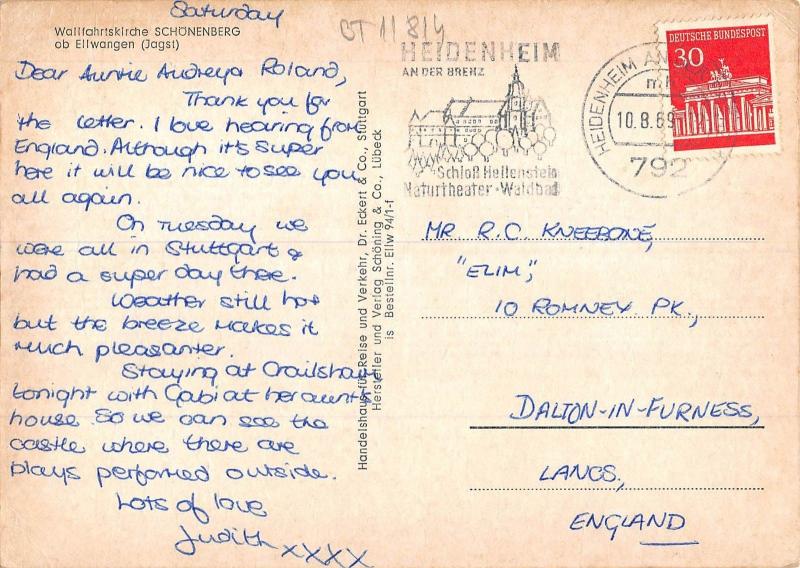 Saturday
Wallfahrtskirche SCHÖNENBERG
ob Ellwangen (Jagst)
Dear Auntie Audreya Roland,
Thank you for
the letter. I love hearing from
England. Although it's super
here it will be nice to see you
all again.
On Tuesday we
were all in Stuttgart &
had a super day there.
Weather still hot
but the breeze makes it
much pleasanter.
Staying at Crailsham
tonight with Gabi at her aunt's
house. So we can see the
castle where there are
plays performed outside.
Lots of love
Judith xxxx
Handelshaus für Reise und Verkehr, Dr. Eckert & Co., Stuttgart
Hersteller und Verlag Schöning & Co., Lübeck
is Bestellnr. Ellw 94/1-f
CT 11 814
HEIDENHEIM
AN DER BRENZ
Schloß Hellenstein
Naturtheater · Waldbad
HEIDENHEIM AN
10.8.69
792
DEUTSCHE BUNDESPOST
30
MR R.C. KNEEBONE,
"ELIM",
10 ROMNEY PK.,
DALTON-IN-FURNESS,
LANCS,
ENGLAND